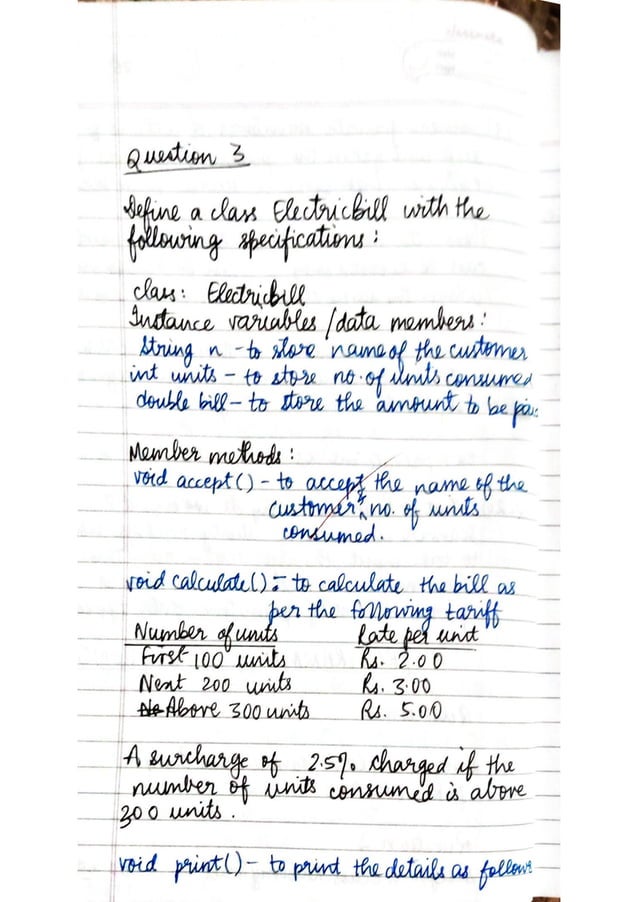 Question 3
Define a class Electricbill with the
following specifications :
class: Electricbill
Instance variables / data members :
String n - to store name of the customer
int units - to store no. of units consumed
double bill - to store the amount to be pai
Member methods :
void accept() - to accept the name of the
customer & no. of units
consumed.
void calculate() :- to calculate the bill as
per the following tariff
Number of units Rate per unit
First 100 units Rs. 2.00
Next 200 units Rs. 3.00
Above 300 units Rs. 5.00
A surcharge of 2.5% charged if the
number of units consumed is above
300 units .
void print() - to print the details as follows